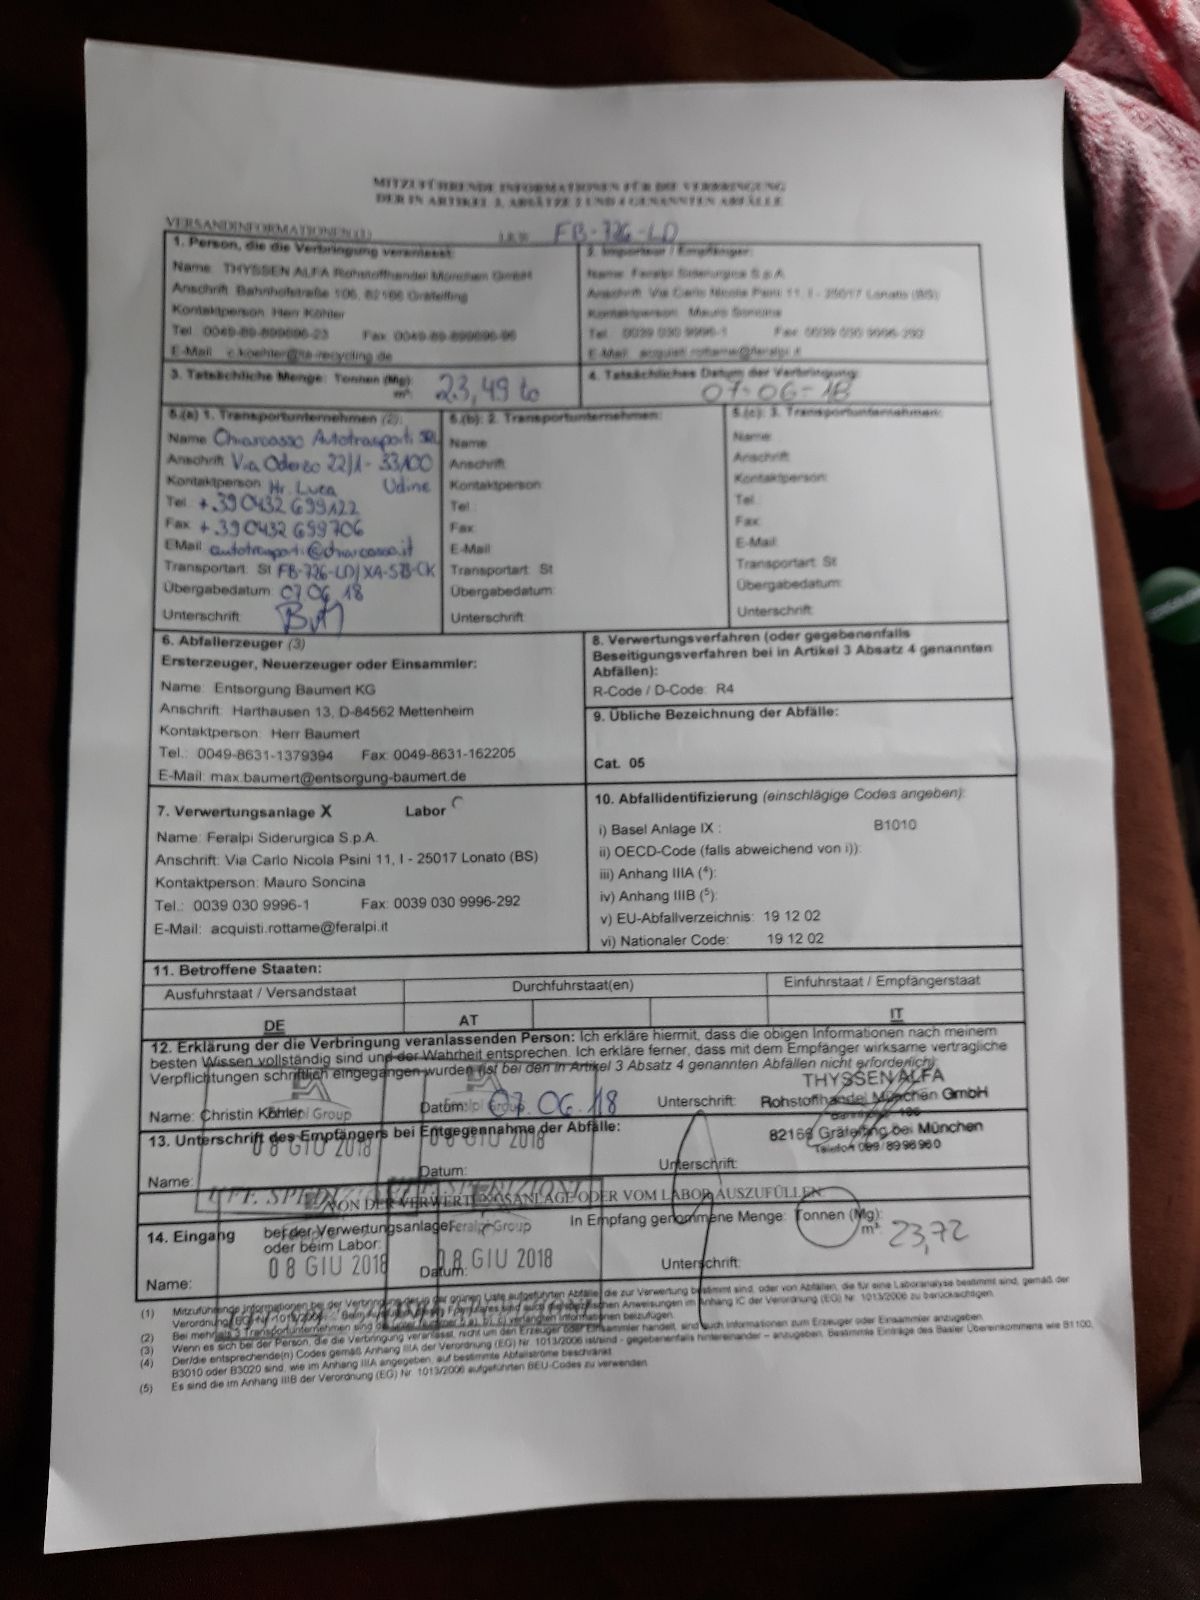 MITZUFÜHRENDE INFORMATIONEN FÜR DIE VERBRINGUNG
DER IN ARTIKEL 3, ABSÄTZE 2 UND 4 GENANNTEN ABFÄLLE
VERSANDINFORMATIONEN (1) LKW FB-726-LD
1. Person, die die Verbringung veranlasst:
Name: THYSSEN ALFA Rohstoffhandel München GmbH
Anschrift: Bahnhofstraße 106, 82166 Gräfelfing
Kontaktperson: Herr Köhler
Tel.: 0049-89-899696-23 Fax: 0049-89-899696-96
E-Mail: c.koehler@ta-recycling.de
2. Importeur / Empfänger:
Name: Feralpi Siderurgica S.p.A.
Anschrift: Via Carlo Nicola Psini 11, I - 25017 Lonato (BS)
Kontaktperson: Mauro Soncina
Tel.: 0039 030 9996-1 Fax: 0039 030 9996-292
E-Mail: acquisti.rottame@feralpi.it
3. Tatsächliche Menge: Tonnen (Mg): 23,49 to
m³:
4. Tatsächliches Datum der Verbringung:
07-06-18
5.(a) 1. Transportunternehmen (2):
Name: Chiarcosso Autotrasporti SRL
Anschrift: Via Oderzo 22/1 - 33100
Kontaktperson: Hr. Luca Udine
Tel.: +39 0432 699122
Fax: +39 0432 699706
EMail: autotrasporti@chiarcosso.it
Transportart: St FB-726-LD/XA-573-CK
Übergabedatum: 07.06.18
Unterschrift:
5.(b): 2. Transportunternehmen:
Name:
Anschrift:
Kontaktperson:
Tel.:
Fax:
E-Mail:
Transportart: St
Übergabedatum:
Unterschrift:
5.(c): 3. Transportunternehmen:
Name:
Anschrift:
Kontaktperson:
Tel.:
Fax:
E-Mail:
Transportart: St
Übergabedatum:
Unterschrift:
6. Abfallerzeuger (3)
Ersterzeuger, Neuerzeuger oder Einsammler:
Name: Entsorgung Baumert KG
Anschrift: Harthausen 13, D-84562 Mettenheim
Kontaktperson: Herr Baumert
Tel.: 0049-8631-1379394 Fax: 0049-8631-162205
E-Mail: max.baumert@entsorgung-baumert.de
8. Verwertungsverfahren (oder gegebenenfalls
Beseitigungsverfahren bei in Artikel 3 Absatz 4 genannten
Abfällen):
R-Code / D-Code: R4
9. Übliche Bezeichnung der Abfälle:
Cat. 05
7. Verwertungsanlage X Labor
Name: Feralpi Siderurgica S.p.A.
Anschrift: Via Carlo Nicola Psini 11, I - 25017 Lonato (BS)
Kontaktperson: Mauro Soncina
Tel.: 0039 030 9996-1 Fax: 0039 030 9996-292
E-Mail: acquisti.rottame@feralpi.it
10. Abfallidentifizierung (einschlägige Codes angeben):
i) Basel Anlage IX : B1010
ii) OECD-Code (falls abweichend von i)):
iii) Anhang IIIA (⁴):
iv) Anhang IIIB (⁵):
v) EU-Abfallverzeichnis: 19 12 02
vi) Nationaler Code: 19 12 02
11. Betroffene Staaten:
Ausfuhrstaat / Versandstaat Durchfuhrstaat(en) Einfuhrstaat / Empfängerstaat
DE AT IT
12. Erklärung der die Verbringung veranlassenden Person: Ich erkläre hiermit, dass die obigen Informationen nach meinem
besten Wissen vollständig sind und der Wahrheit entsprechen. Ich erkläre ferner, dass mit dem Empfänger wirksame vertragliche
Verpflichtungen schriftlich eingegangen wurden (ist bei den in Artikel 3 Absatz 4 genannten Abfällen nicht erforderlich):
Name: Christin Köhler Datum: 07.06.18 Unterschrift:
THYSSEN ALFA
Rohstoffhandel München GmbH
82166 Gräfelfing bei München
Telefon 089/8996960
Feralpi Group
Feralpi Group
13. Unterschrift des Empfängers bei Entgegennahme der Abfälle:
08 GIU 2018 08 GIU 2018
Name: Datum: Unterschrift:
UFF. SPEDIZIONI UFF. SPEDIZIONI
VON DER VERWERTUNGSANLAGE ODER VOM LABOR AUSZUFÜLLEN
14. Eingang bei der Verwertungsanlage
oder beim Labor:
Feralpi Group
In Empfang genommene Menge: Tonnen (Mg): 23,72
m³:
08 GIU 2018 08 GIU 2018
Name: Datum: Unterschrift:
(1) Mitzuführende Informationen bei der Verbringung der in der grünen Liste aufgeführten Abfälle, die zur Verwertung bestimmt sind, oder von Abfällen, die für eine Laboranalyse bestimmt sind, gemäß der
Verordnung (EG) Nr. 1013/2006. Beim Ausfüllen dieses Formulares sind auch die spezifischen Anweisungen im Anhang IC der Verordnung (EG) Nr. 1013/2006 zu berücksichtigen.
(2) Bei mehr als 3 Transportunternehmen sind die unter Nummer 5 a), b), c) verlangten Informationen beizufügen.
(3) Wenn es sich bei der Person, die die Verbringung veranlasst, nicht um den Erzeuger oder Einsammler handelt, sind auch Informationen zum Erzeuger oder Einsammler anzugeben.
(4) Der/die entsprechende(n) Codes gemäß Anhang IIIA der Verordnung (EG) Nr. 1013/2006 ist/sind - gegebenenfalls hintereinander – anzugeben. Bestimmte Einträge des Basler Übereinkommens wie B1100,
B3010 oder B3020 sind, wie im Anhang IIIA angegeben, auf bestimmte Abfallströme beschränkt
(5) Es sind die im Anhang IIIB der Verordnung (EG) Nr. 1013/2006 aufgeführten BEU-Codes zu verwenden